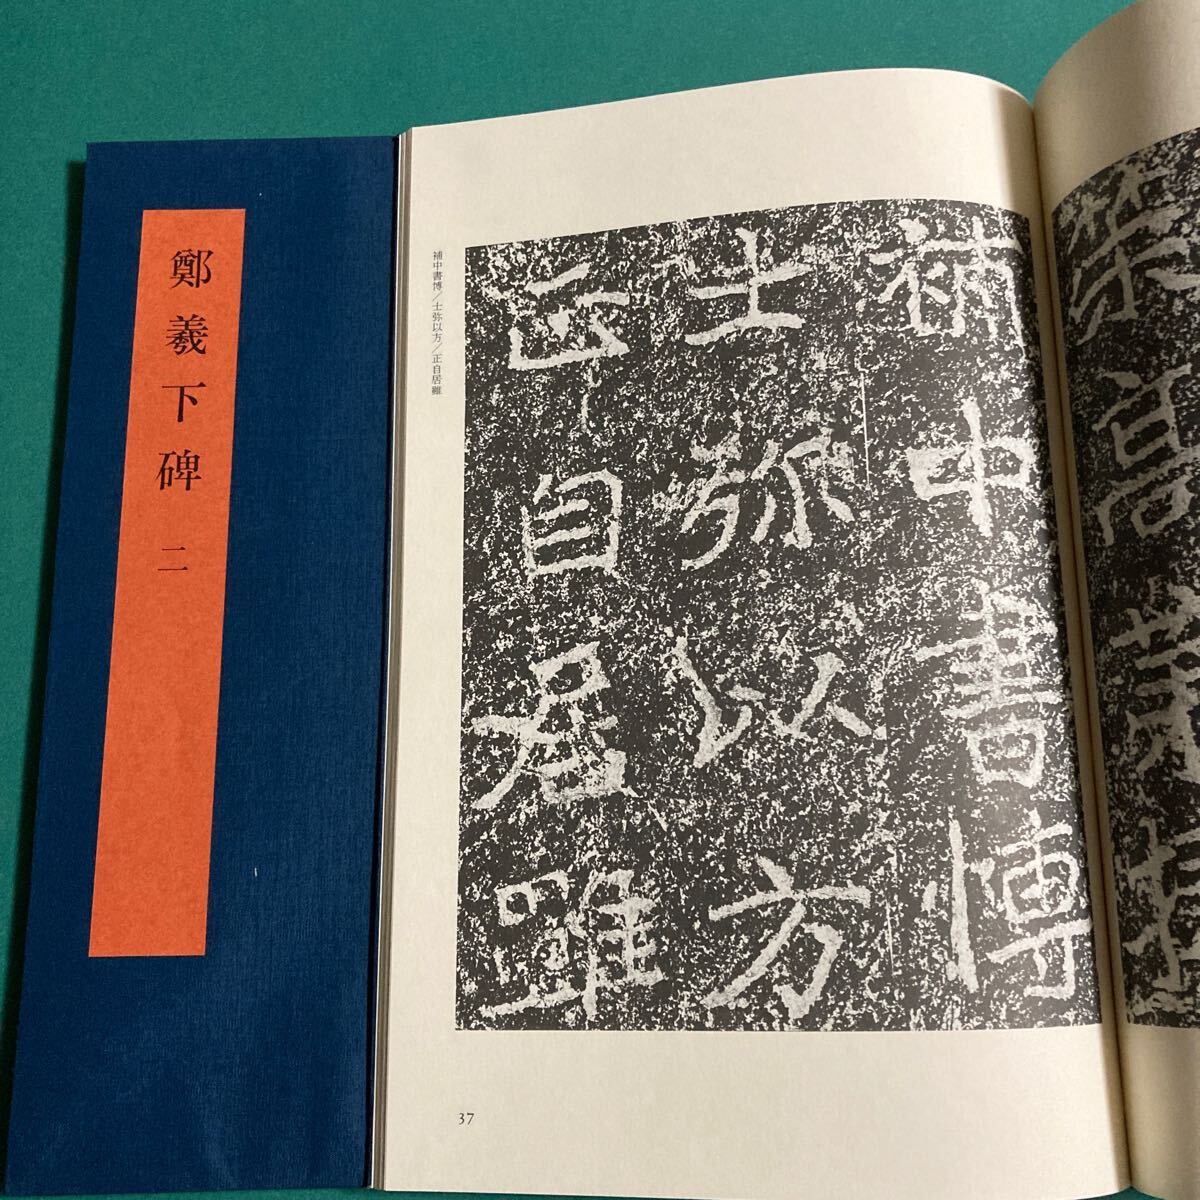 鄭羲下碑 二
補中書博／士弥以方／正自居雖
補中書博
士弥以方
正自居雖
37